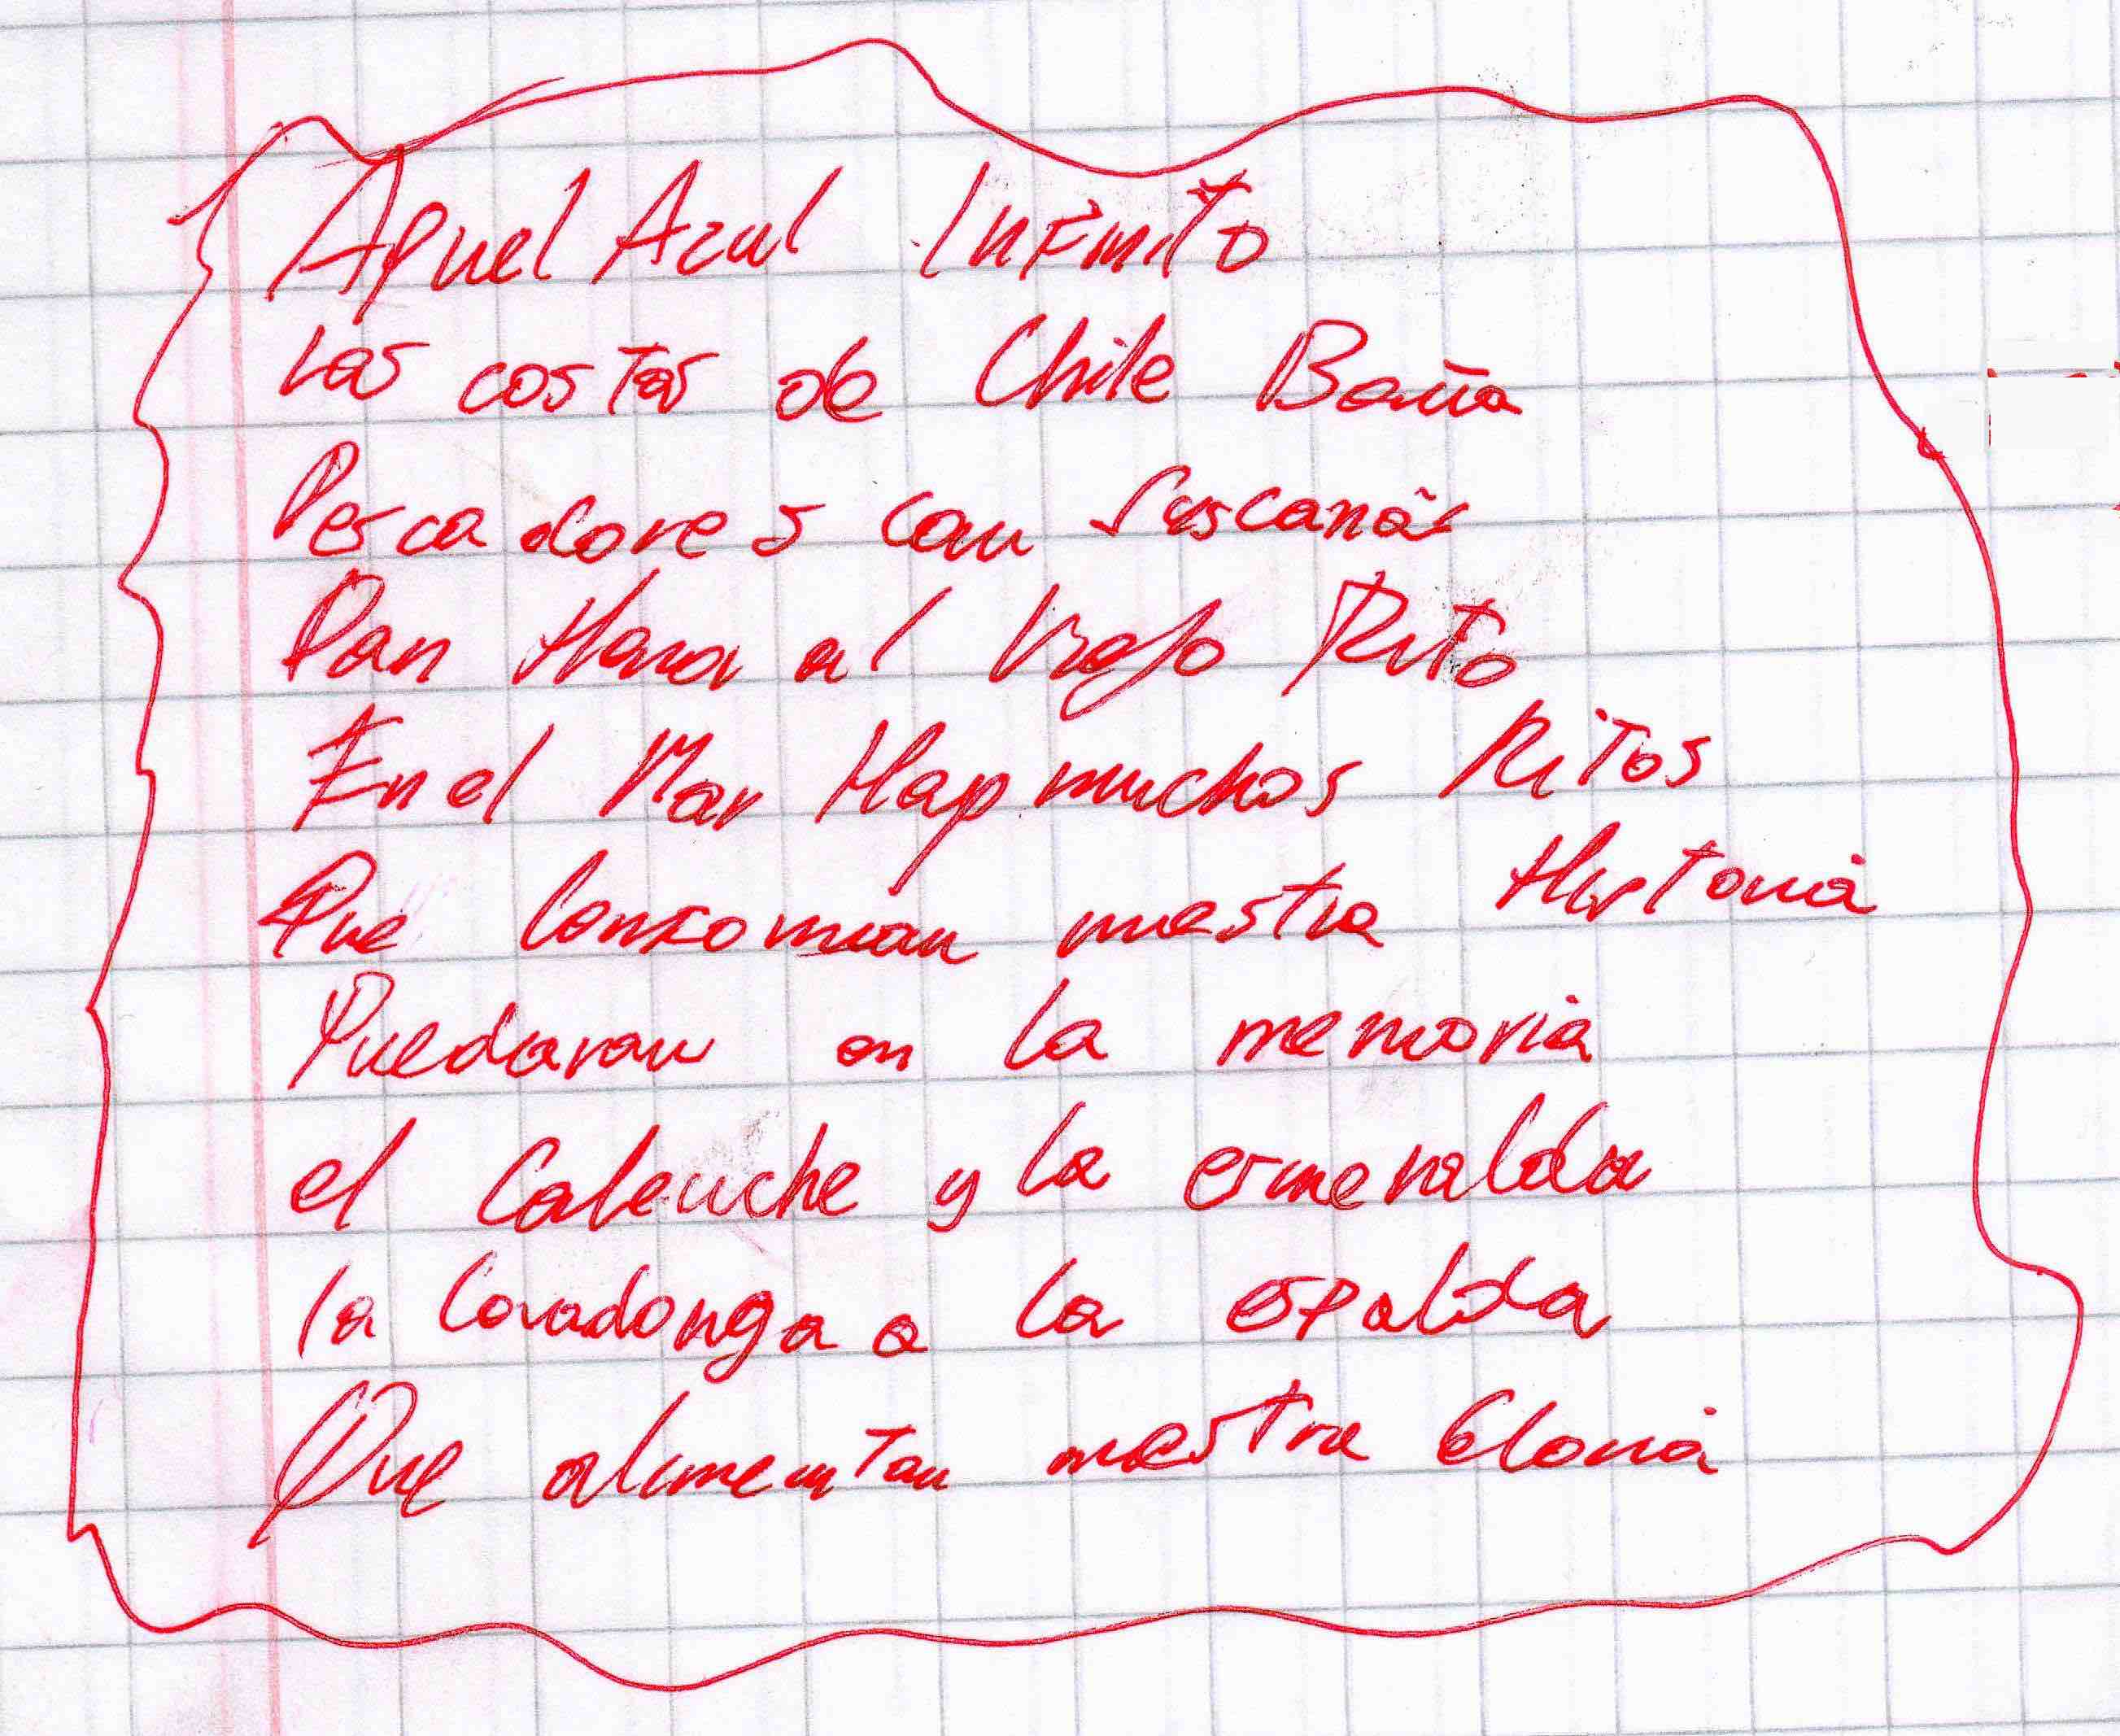 Aquel Azul Infinito
las costas de Chile Baña
Pescadores con sus cañas
Dan Honor al viejo Rito
En el Mar Hay muchos Ritos
Que conforman nuestra Historia
Quedaran en la memoria
el Caleuche y la esmeralda
la Covadonga a la espalda
Que alimentan nuestra Gloria